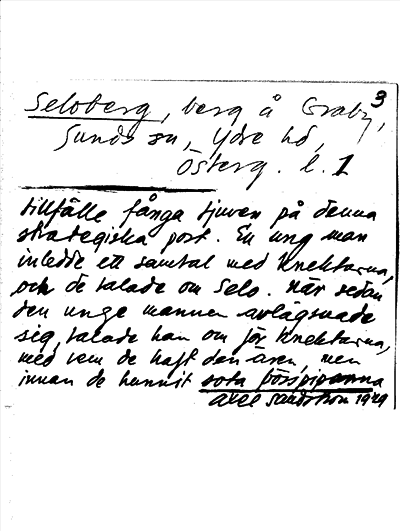 3
Seloberg, berg å Graby,
Sunds sn, Ydre hd,
Österg. l. 1
tillfälle fånga tjuven på denna
strategiska post. En ung man
inledde ett samtal med knektarna,
och de talade om Selo. När sedan
den unge mannen avlägsnade
sig, talade han om för knektarna,
med vem de haft den äran, men
innan de hunnit sota bösspiporna
Axel Sandström 1929